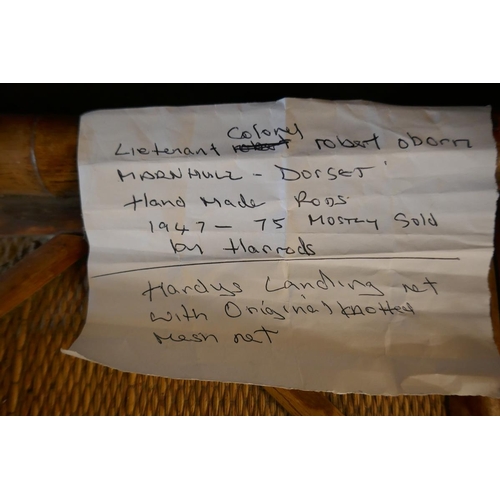 Colonel
Lietenant robert oborn
MARNHULL - DORSET
Hand Made Rods
1947 - 75 Mostly Sold
by Harrods
Hardys Landing net
with Original knotted
Mesh net